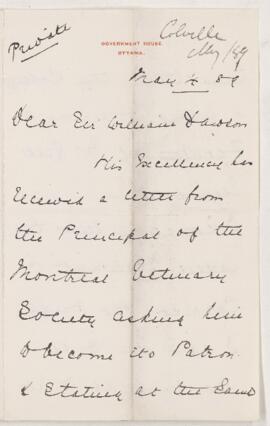 Private
Colville
May/89
GOVERNMENT HOUSE.
OTTAWA.
May 4 89
Dear Sir William Dawson
His Excellency has
received a letter from
the Principal of the
Montreal Vetinary
Society asking him
to become its Patron
& Stating at the same